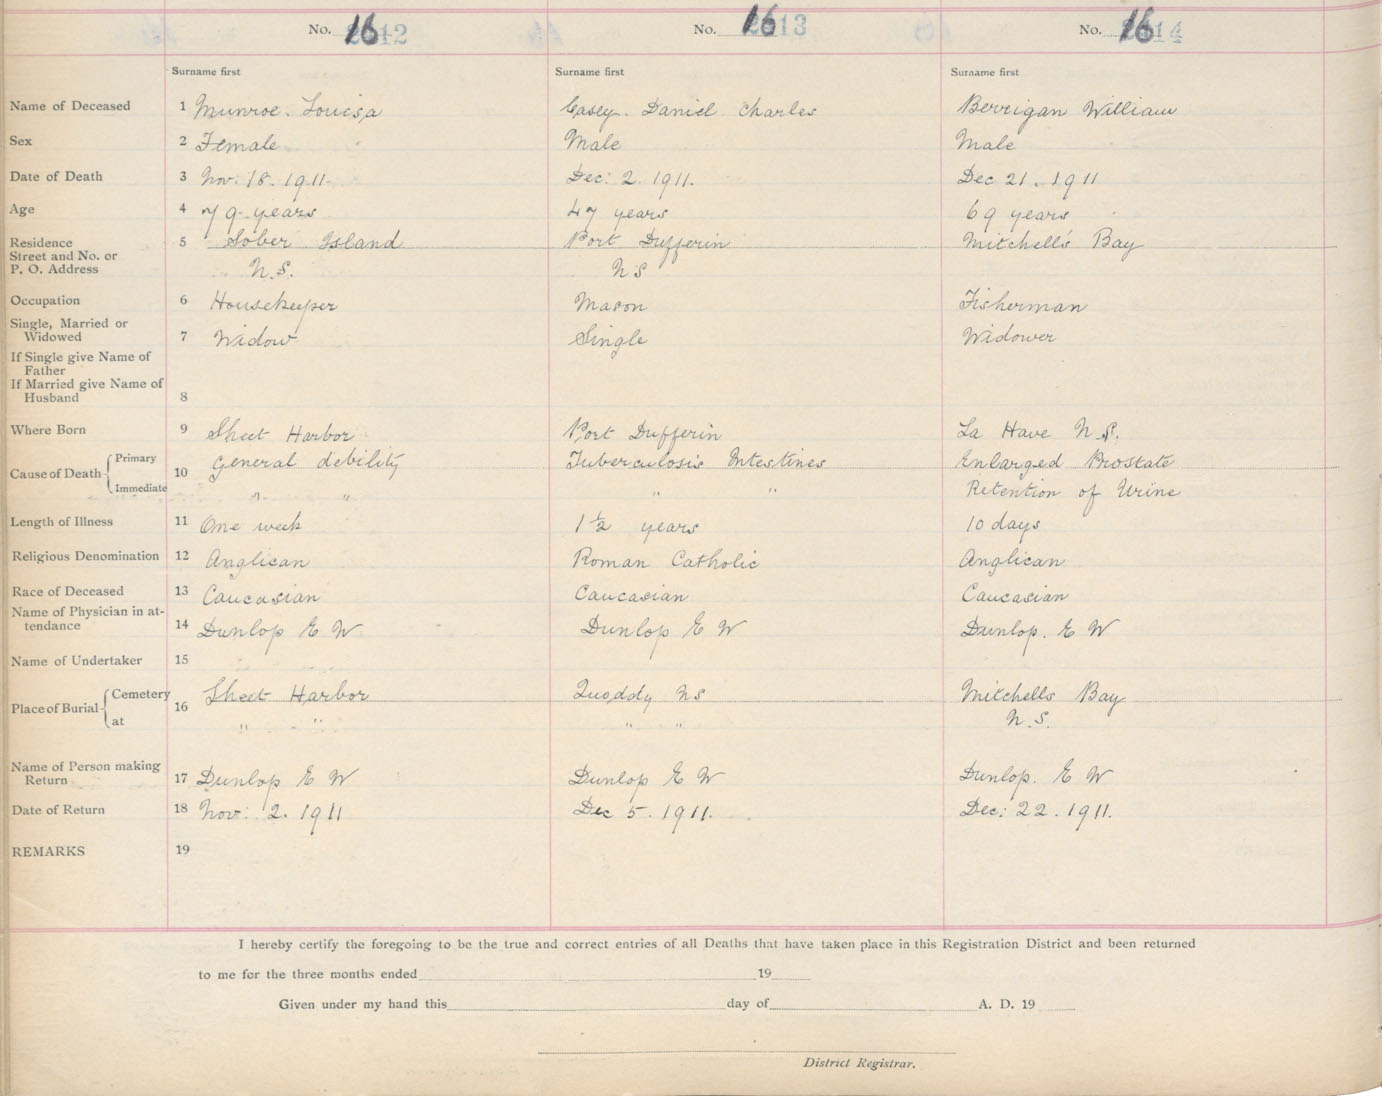 No. 1612 No. 1613 No. 1614
Surname first Surname first Surname first
Name of Deceased 1 Munroe. Louisa Casey. Daniel Charles Berrigan William
Sex 2 Female Male Male
Date of Death 3 Nov: 18. 1911. Dec: 2. 1911. Dec 21. 1911
Age 4 79 years 47 years 69 years
Residence 5 Sober Island Port Dufferin Mitchell's Bay
Street and No. or
P. O. Address N.S. NS
Occupation 6 Housekeeper Mason Fisherman
Single, Married or
Widowed 7 Widow Single Widower
If Single give Name of
Father
If Married give Name of
Husband 8
Where Born 9 Sheet Harbor Port Dufferin La Have N.S.
Cause of Death Primary 10 General debility Tuberculosis Intestines Enlarged Prostate
Immediate " " " " Retention of Urine
Length of Illness 11 One week 1 1/2 years 10 days
Religious Denomination 12 Anglican Roman Catholic Anglican
Race of Deceased 13 Caucasian Caucasian Caucasian
Name of Physician in at-
tendance 14 Dunlop E W Dunlop E W Dunlop. E W
Name of Undertaker 15
Place of Burial Cemetery 16 Sheet Harbor Quoddy NS Mitchells Bay
at " " " " N.S.
Name of Person making
Return 17 Dunlop E W Dunlop E W Dunlop. E W
Date of Return 18 Nov: 2. 1911 Dec 5. 1911. Dec: 22. 1911.
REMARKS 19
I hereby certify the foregoing to be the true and correct entries of all Deaths that have taken place in this Registration District and been returned
to me for the three months ended 19
Given under my hand this day of A. D. 19
District Registrar.